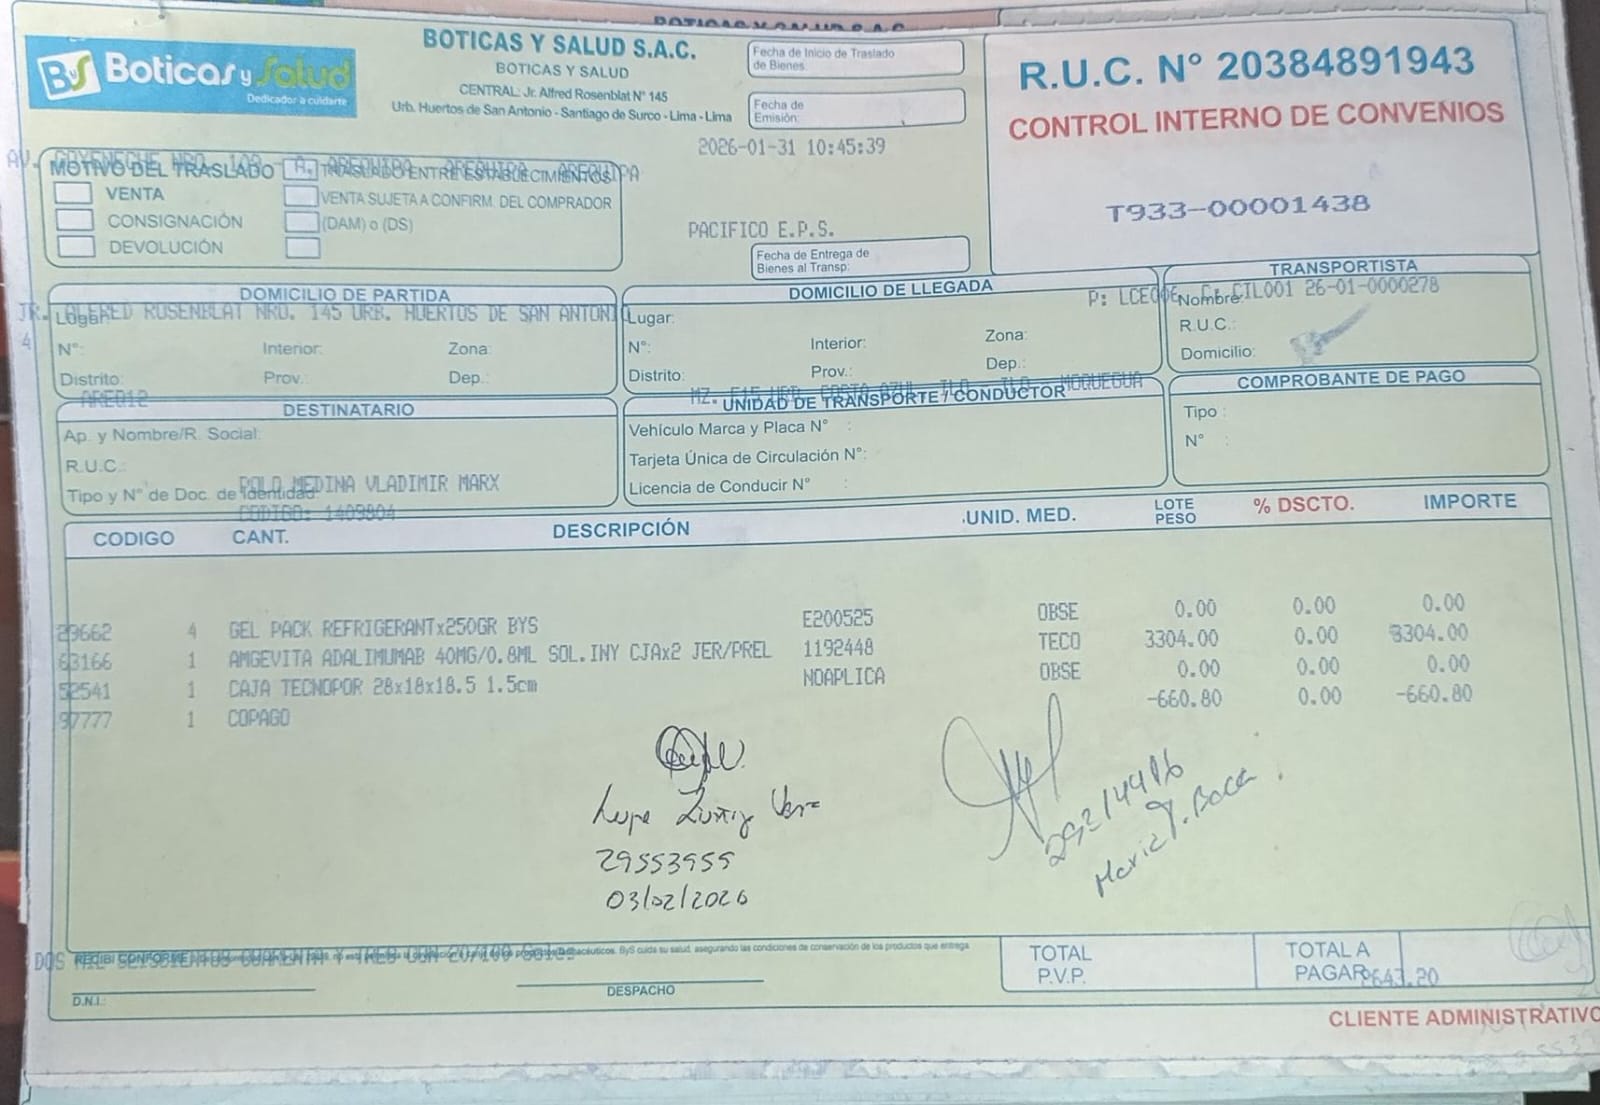 BOTICAS Y SALUD S.A.C.
ByS Boticas y Salud
Dedicados a cuidarte
BOTICAS Y SALUD S.A.C.
BOTICAS Y SALUD
CENTRAL: Jr. Alfred Rosenblat N° 145
Urb. Huertos de San Antonio - Santiago de Surco - Lima - Lima
Fecha de Inicio de Traslado de Bienes:
Fecha de Emisión:
2026-01-31 10:45:39
R.U.C. N° 20384891943
CONTROL INTERNO DE CONVENIOS
T933-00001438
AV. GOYENECHE NRO. AREQUIPA AREQUIPA AREQUIPA
MOTIVO DEL TRASLADO
TRASLADO ENTRE ESTABLECIMIENTOS
VENTA
VENTA SUJETA A CONFIRM. DEL COMPRADOR
CONSIGNACIÓN
(DAM) o (DS)
DEVOLUCIÓN
PACIFICO E.P.S.
Fecha de Entrega de Bienes al Transp:
DOMICILIO DE PARTIDA
JR. ALFRED ROSENBLAT NRO. 145 URB. HUERTOS DE SAN ANTONI
4
Lugar:
N°: Interior: Zona:
Distrito: Prov.: Dep.:
AREQ12
DOMICILIO DE LLEGADA
Lugar:
N°: Interior: Zona:
Distrito: Prov.: Dep.:
MZ. COSTA AZUL ILO ILO MOQUEGUA
TRANSPORTISTA
26-01-0000278
Nombre:
R.U.C.:
Domicilio:
DESTINATARIO
Ap. y Nombre/R. Social:
R.U.C.:
POLO MEDINA VLADIMIR MARX
Tipo y N° de Doc. de Identidad:
CODIGO: 1409804
UNIDAD DE TRANSPORTE / CONDUCTOR
Vehículo Marca y Placa N° :
Tarjeta Única de Circulación N°:
Licencia de Conducir N° :
COMPROBANTE DE PAGO
Tipo :
N° :
CODIGO CANT. DESCRIPCIÓN UNID. MED. LOTE PESO % DSCTO. IMPORTE
23662 4 GEL PACK REFRIGERANTx250GR BYS E200525 OBSE 0.00 0.00 0.00
63166 1 AMGEVITA ADALIMUMAB 40MG/0.8ML SOL.INY CJAx2 JER/PREL 1192448 TECO 3304.00 0.00 3304.00
52541 1 CAJA TECNOPOR 28x18x18.5 1.5cm NOAPLICA OBSE 0.00 0.00 0.00
97777 1 COPAGO -660.80 0.00 -660.80
29553955
03/02/2026
29214496
Maria T. Baca
DOS MIL SEISCIENTOS CUARENTA Y TRES CON 20/100 Soles
RECIBI CONFORME
ByS cuida su salud, asegurando las condiciones de conservación de los productos que entrega
D.N.I.:
DESPACHO
TOTAL P.V.P.
TOTAL A PAGAR 2643.20
CLIENTE ADMINISTRATIVO